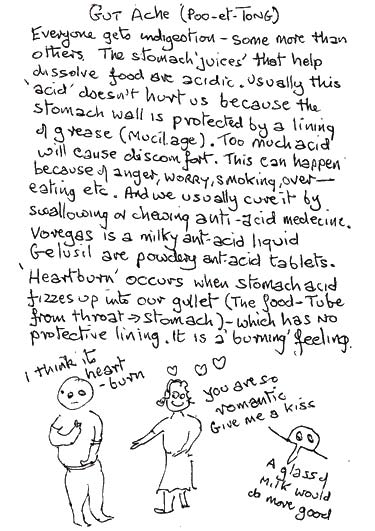 GUT ACHE (POO-et-TONG)
Everyone gets indigestion - some more than
others. The stomach 'juices' that help
dissolve food are acidic. Usually this
'acid' doesn't hurt us because the
stomach wall is protected by a lining
of grease (Mucilage). Too much acid
will cause discomfort. This can happen
because of anger, worry, smoking, over-
eating etc. And we usually cure it by
swallowing or chewing anti-acid medecine.
Voregas is a milky ant-acid liquid
Gelusil are powdery ant-acid tablets.
'Heartburn' occurs when stomach acid
fizzes up into our gullet (The food-Tube
from throat → stomach) - which has NO
protective lining. It is a 'burning' feeling.
I think its
heart
-burn
you are so
romantic
Give me a kiss
A glass of
Milk would
do more good